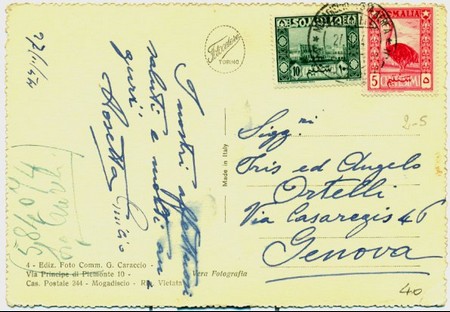 SOMALIA
10
SOMALIA
5 CENTESIMI ٥
Fotocelere
TORINO
I nostri affettuosi
saluti e molti au
guri
Rosetta Giulio
Made in Italy
Sigg.ri
Iris ed Angelo
Ortelli
Via Casaregis 46
Genova
40
4 - Ediz. Foto Comm. G. Caraccio
Via Principe di Piemonte 10 -
Cas. Postale 244 - Mogadiscio - Rip. Vietata
Vera Fotografia